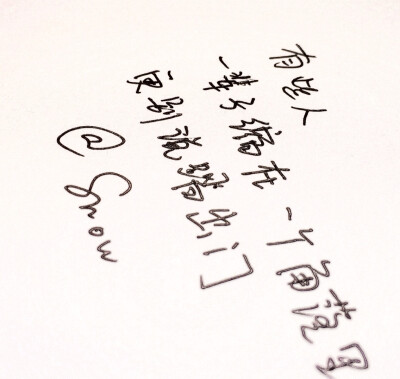 有些人
一辈子缩在一个角落里
更别说踏出门
@Snow